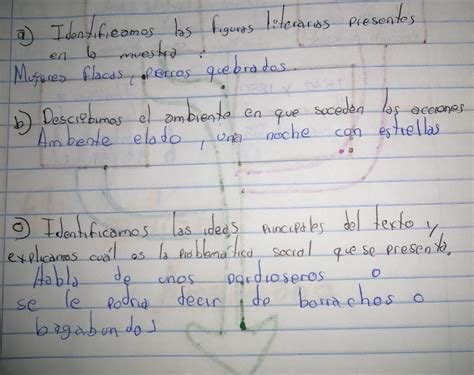 a) Identificamos las figuras literarias presentes
en la muestra :
Mujeres flacas, perros quebrados.
b) Describimos el ambiente en que suceden las acciones
Ambente elado, una noche con estrellas
c) Identificamos las ideas principales del texto y
explicamos cuál es la problemática social que se presenta.
Habla de unos pordioseros o
se le podria decir de borrachos o
bagabundos